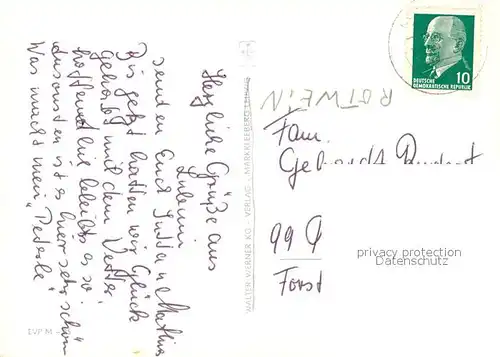 Herzliche Grüße aus
senden Euch Jutta u. Mathias
Bis jetzt hatten wir Glück
gehabt mit dem Wetter
hoffentlich bleibt es so.
Ansonsten ist es hier sehr schön
Was macht mein "Peterle"
EVP M
WALTER WERNER KG · VERLAG · MARKKLEEBERG
DEUTSCHE
DEMOKRATISCHE REPUBLIK
10
ROTWEIN
Fam.
99
Forst
privacy protection
Datenschutz